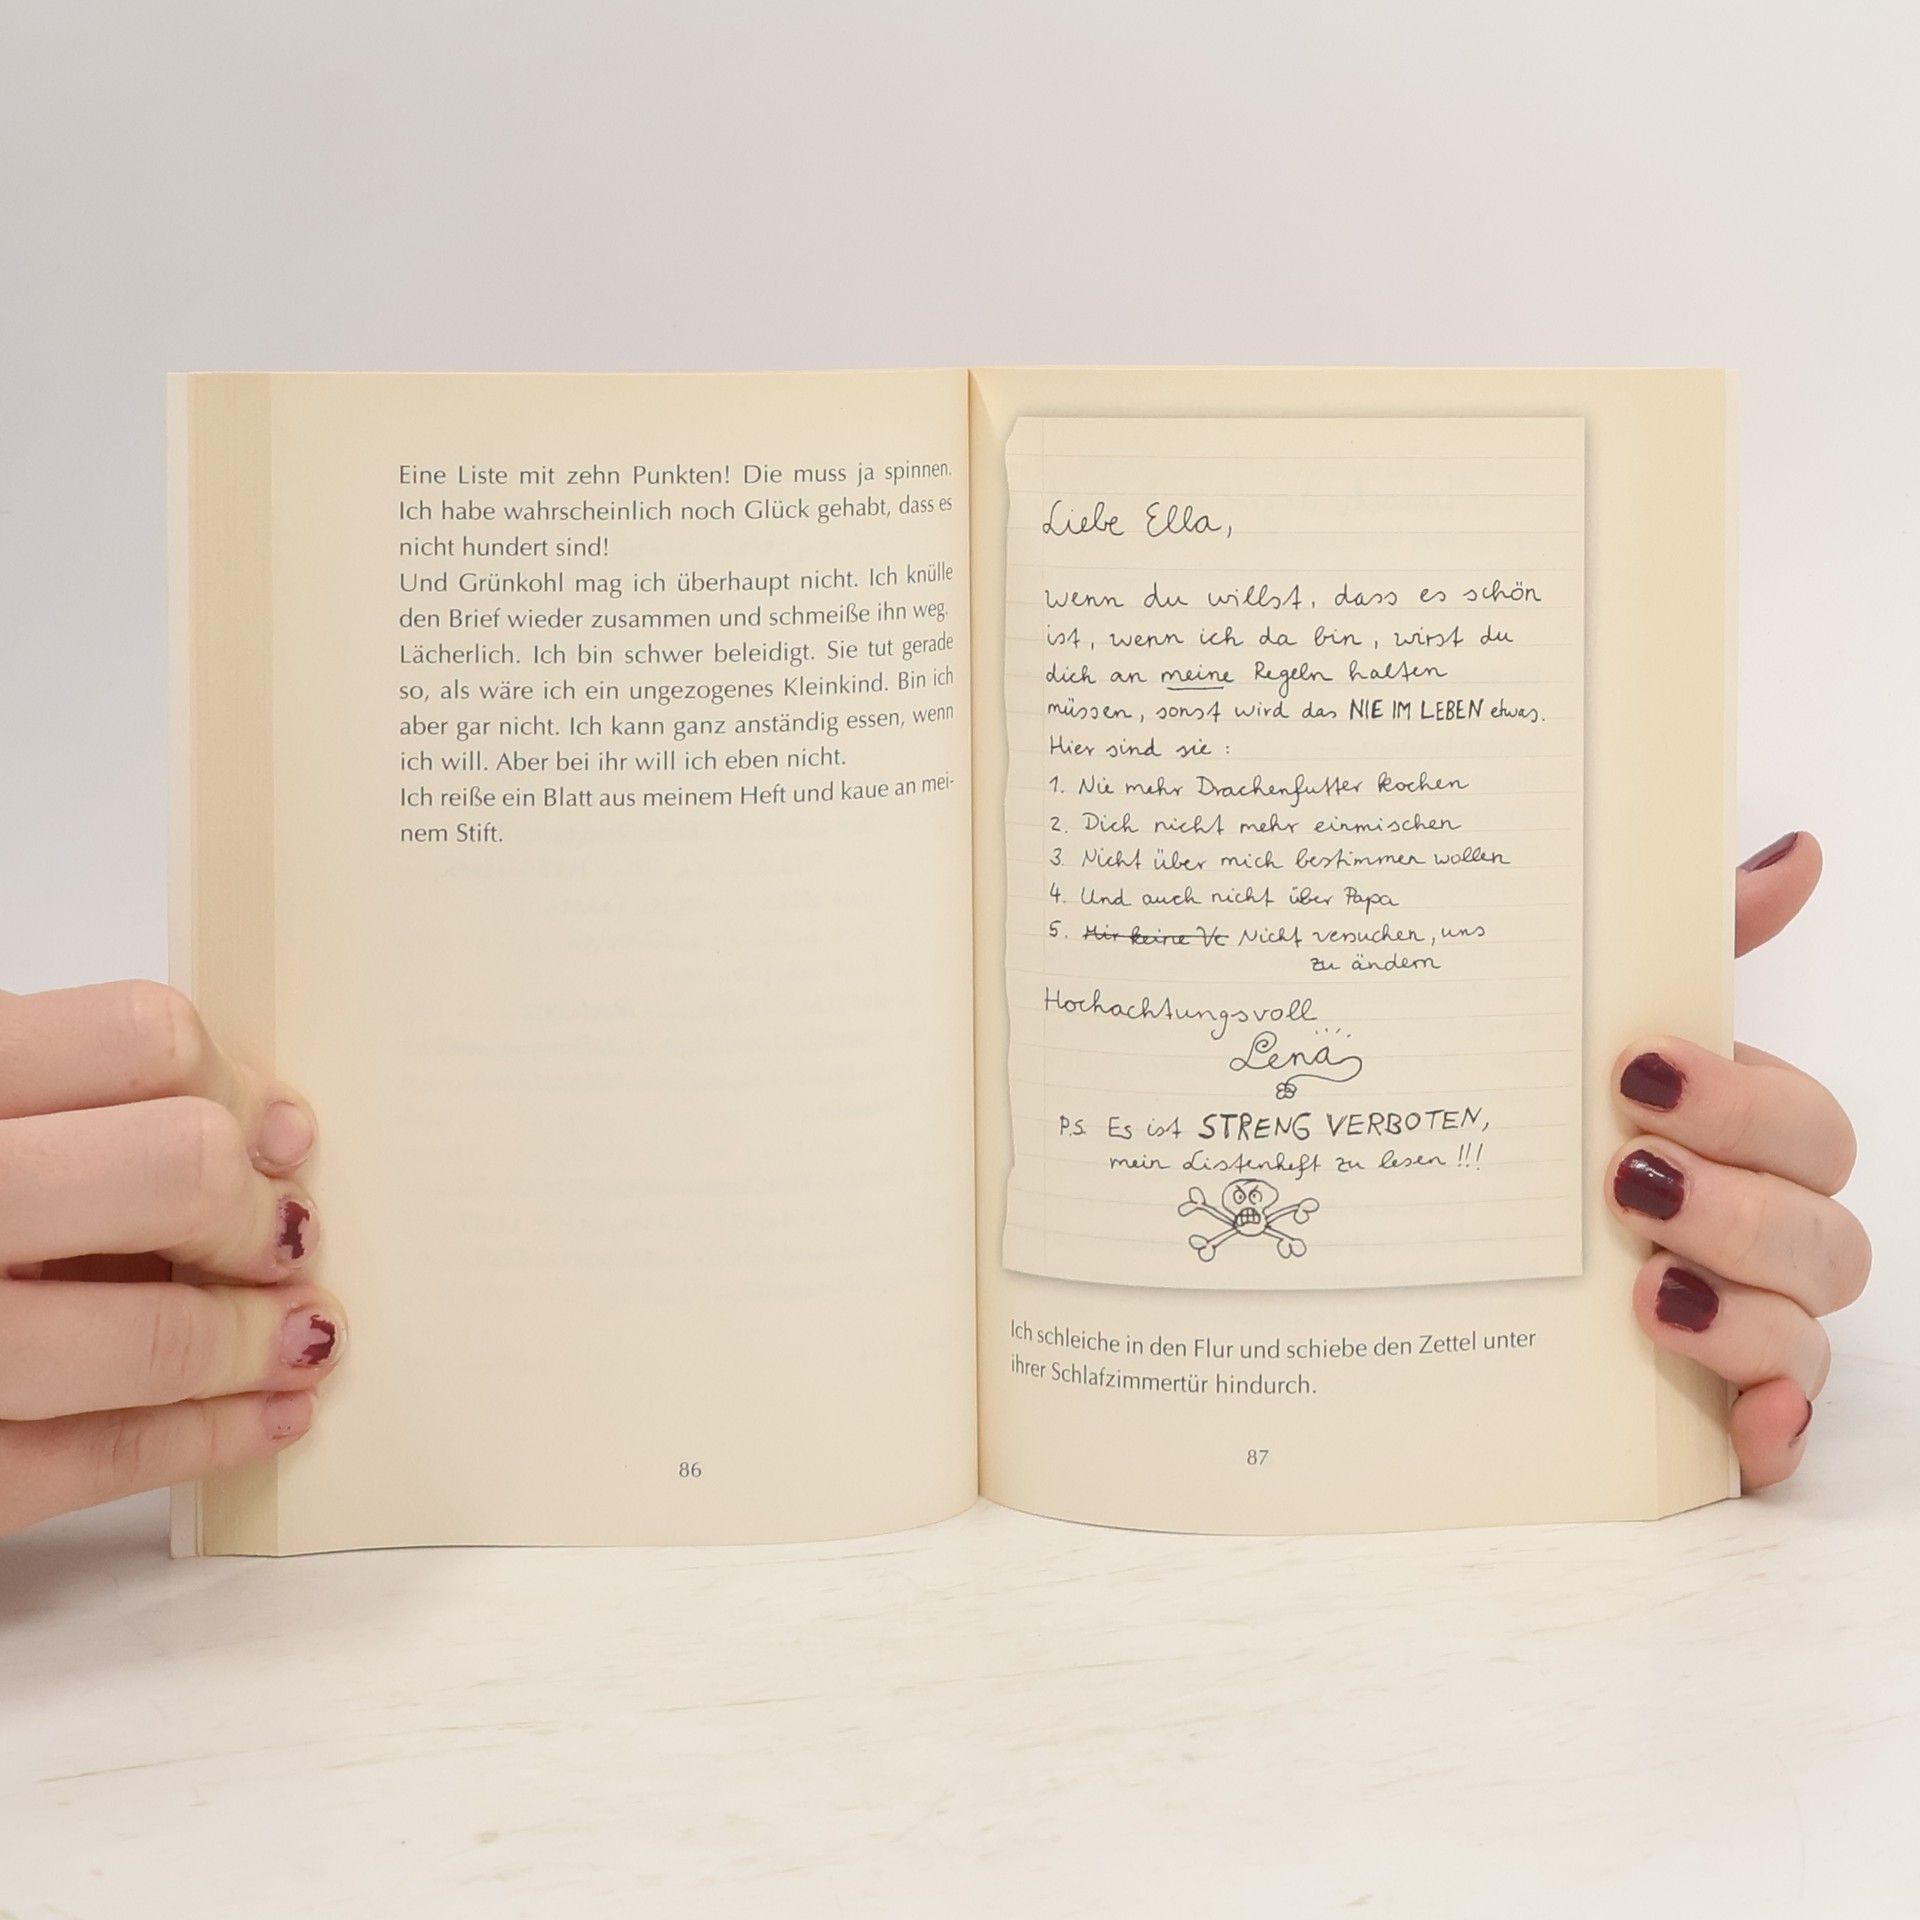 Eine Liste mit zehn Punkten! Die muss ja spinnen.
Ich habe wahrscheinlich noch Glück gehabt, dass es
nicht hundert sind!
Und Grünkohl mag ich überhaupt nicht. Ich knülle
den Brief wieder zusammen und schmeiße ihn weg.
Lächerlich. Ich bin schwer beleidigt. Sie tut gerade
so, als wäre ich ein ungezogenes Kleinkind. Bin ich
aber gar nicht. Ich kann ganz anständig essen, wenn
ich will. Aber bei ihr will ich eben nicht.
Ich reiße ein Blatt aus meinem Heft und kaue an mei-
nem Stift.
86
Liebe Ella,
wenn du willst, dass es schön
ist, wenn ich da bin, wirst du
dich an meine Regeln halten
müssen, sonst wird das NIE IM LEBEN etwas.
Hier sind sie:
1. Nie mehr Drachenfutter kochen
2. Dich nicht mehr einmischen
3. Nicht über mich bestimmen wollen
4. Und auch nicht über Papa
5. Mir keine Ve Nicht versuchen, uns
zu ändern
Hochachtungsvoll
Lena
P.S. Es ist STRENG VERBOTEN,
mein Listenheft zu lesen!!!
Ich schleiche in den Flur und schiebe den Zettel unter
ihrer Schlafzimmertür hindurch.
87